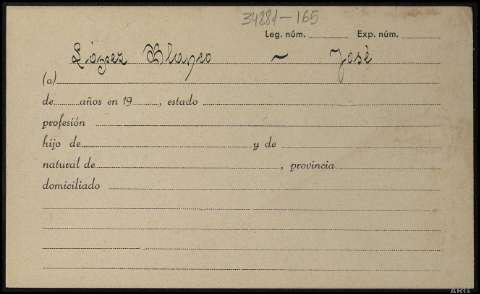 34281-165
Leg. núm. Exp. núm.
López Blanco ~ José
(a)
de años en 19 , estado
profesión
hijo de y de
natural de , provincia
domiciliado